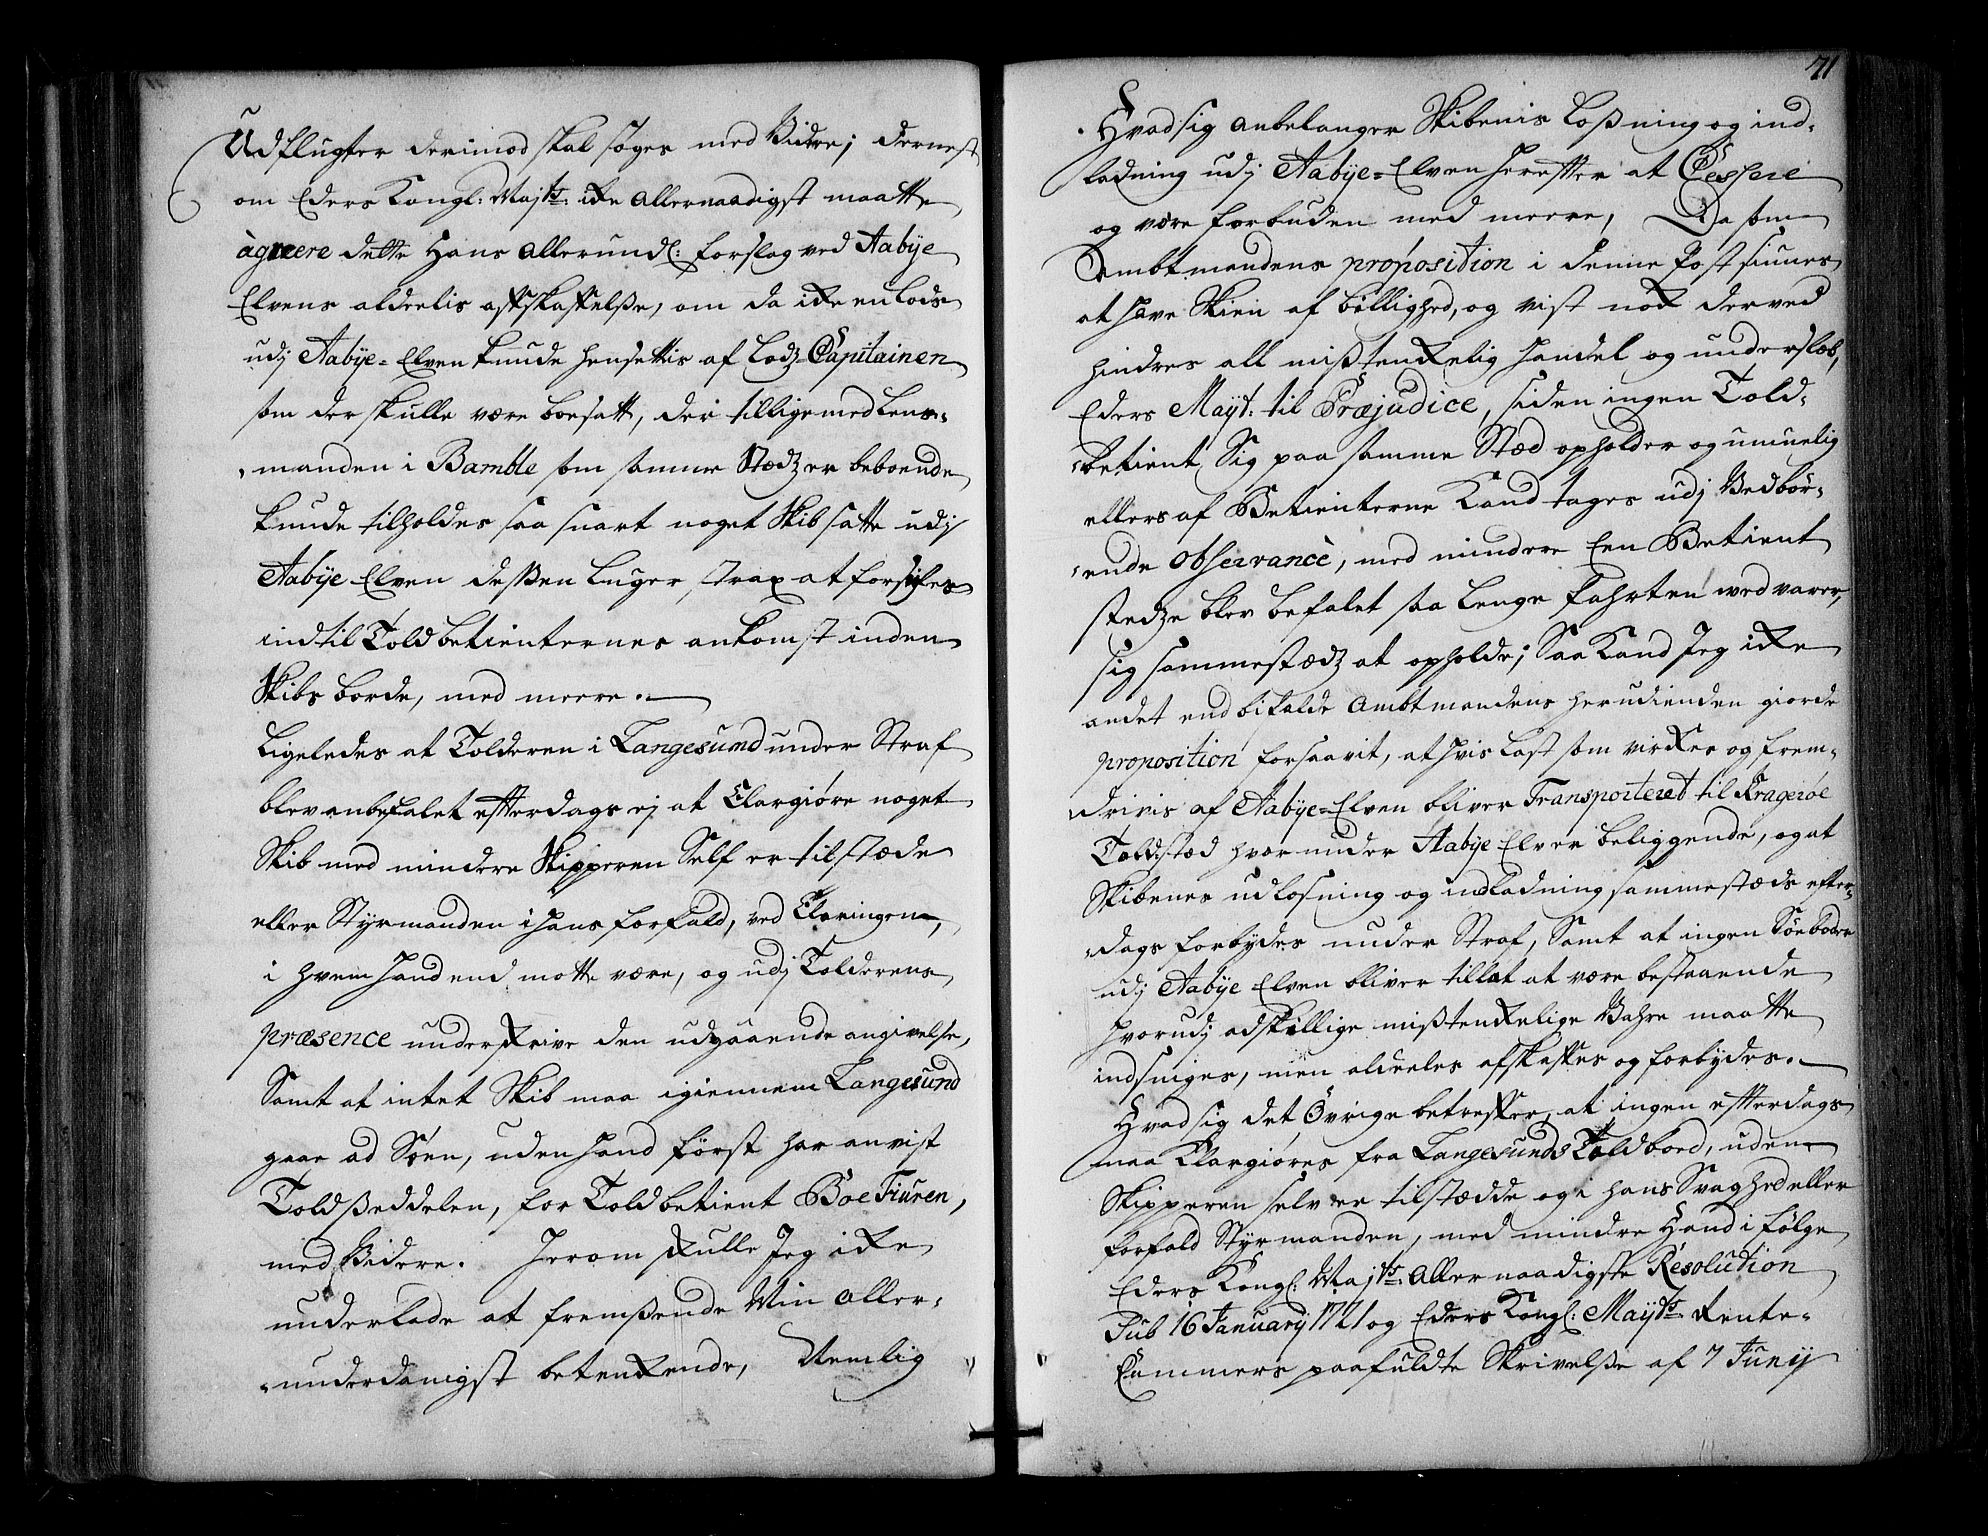 Udflugter derimod skal søges med Videre; dernest
om Eders Kongl: Majts: icke allernaadigst maatte
àgreere dette Hans allerundl: forslag ved Aabÿe
Elvens aldeelis afskaffelße, om da icke en Lods
udj Aabÿe-Elven kunde hensettis af Lodz-Capitainen
som der skulle være boesatt, der tillige med Lens-
manden i Bamble som samme Stædz er beboende
kunde tilholdes saa snart noget Skib satte udj
Aabÿe Elven deßen Luger, strax at forsigles
indtil Toldbetienternes ankomst inden
Skibs borde, med meere.
Ligeledes at Tolderen i Langesund under Straf
blev anbefalet efterdags ej at Clargiøre noget
Skib med mindere Skipperen Self er tilstæde
eller Styrmanden i hans forfald, ved Claringen,
i hvem hand end motte være, og udj Tolderens
præsence underskrive den udgaaende angivelse,
Samt at intet Skib maa igiennem Langesund
gaae ad Søen, uden hand først har anvist
Toldßeddelen, for Toldbetient Boe Tiuren,
med Videre. Herom skulle Jeg icke
underlade at fremßende Min aller-
underdanigst betenkende, Nemlig
71
Hvad sig anbelanger Skibenis Loßning og ind-
ladning udj Aabÿe-Elven herefter at Cessere
og være forbuden med meere, Da som
Ambtmandens proposition i denne Post siunes
at have Skien af billighed, og vist nok derved
hindres all mißtenkelig handel og underslæb,
Eders Mayt: til Præjudice, siden ingen Told-
betient Sig paa samme Stæd opholder og umuelig
ellers af Betienterne Kand tages udj Vedbør-
ende observance, med mindere Een Betient
stedze blev befalet saa lenge Fahrten vedvarer,
sig sammestædz at opholde; Saa Kand Jeg icke
andet end bifalde Ambtmandens herudienden giorde
proposition forsaavit, at hvis Last som virkes og frem-
drivis af Aabÿe-Elven bliver Transporteret til Kragerøe
Toldstæd hvorunder Aabÿe Elv er beliggende, og at
Skibenes udlosning og indladning sammestæds efter-
dags forbydes under Straf, Samt at ingen Søeboder
udj Aabÿe Elven bliver tillat at være bestaaende
hvorudj adskillige mißtenkelige Vahre maatte
indsniges, men aldeeles afskaffes og forbydes.
Hvad sig det Øvrige betreffer, at ingen efterdags
maa Clargiøres fra Langesunds Toldboed, uden
Skipperen selv er tilstædde og i hans Svaghed eller
forfald Styrmanden, med mindre Hand i følge
Eders Kongl: Majts: Allernaadigste Resolution
Sub 16 January 1721 og Eders Kongl: Mayts: Rente-
Cammers paafuldte Skrivelße af 7 Junij